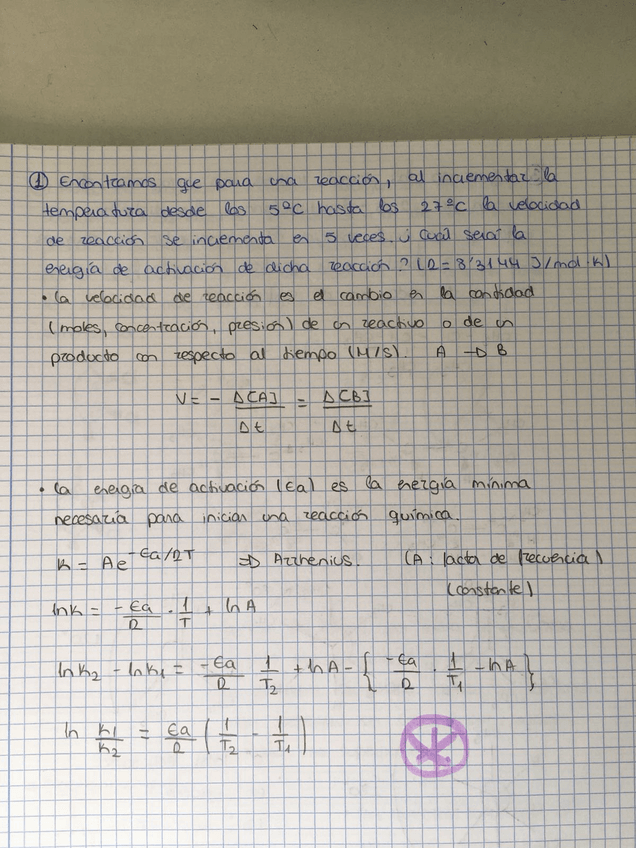 ① Encontramos que para una reacción, al incrementar la
temperatura desde los 5ºC hasta los 27ºC la velocidad
de reacción se incrementa en 5 veces. ¿Cuál será la
energía de activación de dicha reacción? (R = 8'3144 J/mol·K)
• La velocidad de reacción es el cambio en la cantidad
(moles, concentración, presión) de un reactivo o de un
producto con respecto al tiempo (M/s). A → B
V = - Δ[A]/Δt = Δ[B]/Δt
• La energía de activación (Ea) es la energía mínima
necesaria para iniciar una reacción química.
K = Ae^-Ea/RT ⇒ Arrhenius. (A: facta de frecuencia)
(constante)
lnK = -Ea/R · 1/T + lnA
lnK₂ - lnK₁ = -Ea/R 1/T₂ + lnA - { -Ea/R · 1/T₁ - lnA }
ln K₁/K₂ = Ea/R ( 1/T₂ - 1/T₁ )